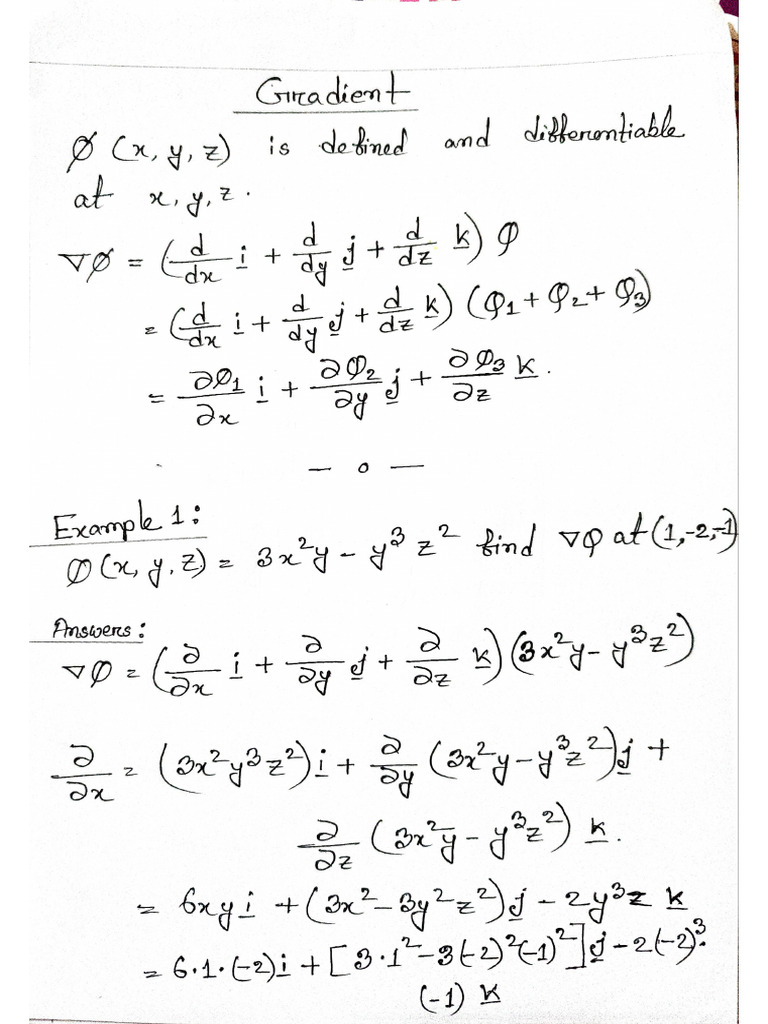 Gradient
Ø (x, y, z) is defined and differentiable
at x, y, z.
∇Ø = (d/dx i + d/dy j + d/dz k) Φ
= (d/dx i + d/dy j + d/dz k) (Φ1 + Φ2 + Φ3)
= ∂Φ1/∂x i + ∂Φ2/∂y j + ∂Φ3/∂z k.
— o —
Example 1:
Ø (x, y, z) = 3x²y – y³ z² find ∇Φ at (1,-2,-1)
Answers:
∇Ø = (∂/∂x i + ∂/∂y j + ∂/∂z k) (3x²y – y³z²)
∂/∂x = (3x²y³z²) i + ∂/∂y (3x²y – y³z²) j +
∂/∂z (3x²y – y³z²) k.
= 6xy i + (3x² – 3y²z²) j – 2y³z k
= 6·1·(-2) i + [3·1² – 3(-2)²(-1)²] j – 2(-2)³·
(-1) k